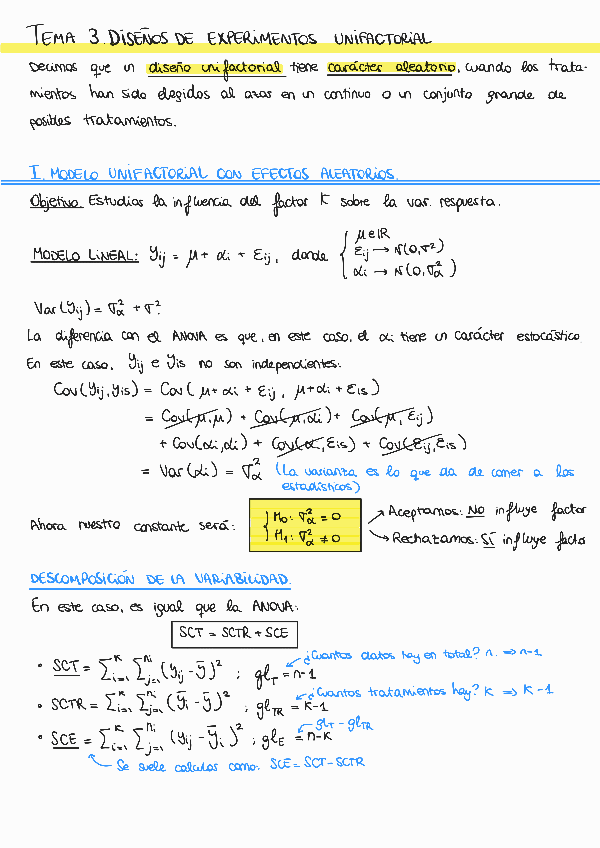 TEMA 3. DISEÑOS DE EXPERIMENTOS UNIFACTORIAL
Decimos que un diseño unifactorial tiene carácter aleatorio, cuando los trata-
mientos han sido elegidos al azar en un continuo o un conjunto grande de
posibles tratamientos.
I. MODELO UNIFACTORIAL CON EFECTOS ALEATORIOS.
Objetivo. Estudias la influencia del factor K sobre la var. respuesta.
MODELO LINEAL: Yij = μ + αi + εij, donde { μ ∈ ℝ
εij → N(0, σ²)
αi → N(0, σ²α)
Var(Yij) = σ²α + σ².
La diferencia con el ANOVA es que, en este caso, el αi tiene un carácter estocástico
En este caso, Yij e Yis no son independientes:
Cov(Yij, Yis) = Cov(μ + αi + εij, μ + αi + εis)
= Cov(μ, μ) + Cov(μ, αi) + Cov(μ, εij)
+ Cov(αi, αi) + Cov(αi, εis) + Cov(εij, εis)
= Var(αi) = σ²α (La varianza es lo que da de comer a los
estadísticos)
Ahora nuestro constante será: { H0: σ²α = 0
H1: σ²α ≠ 0
Aceptamos: NO influye factor
Rechazamos: SÍ influye facto
DESCOMPOSICIÓN DE LA VARIABILIDAD.
En este caso, es igual que la ANOVA:
SCT = SCTR + SCE
• SCT = Σ^K_{i=1} Σ^{ni}_{j=1} (yij - ȳ)² ; glT = n-1 ¿Cuantos datos hay en total? n. ⇒ n-1
• SCTR = Σ^K_{i=1} Σ^{ni}_{j=1} (ȳi - ȳ)² ; glTR = K-1 ¿Cuantos tratamientos hay? K ⇒ K-1
• SCE = Σ^K_{i=1} Σ^{ni}_{j=1} (yij - ȳi)² ; glE = n-K glT - glTR
Se suele calculas como: SCE = SCT - SCTR